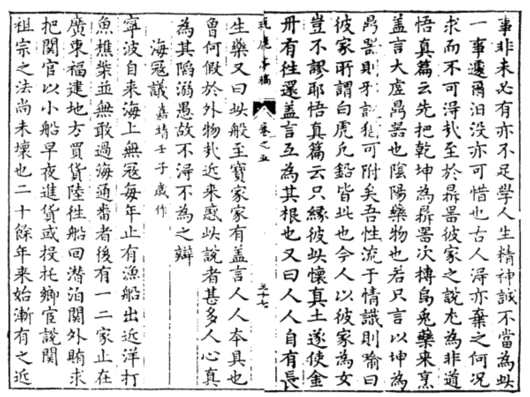 事非未必有亦不足學人生精神誠不當為此
一事遽爾汨沒亦可惜也古人淂亦棄之何況
求而不可淂㢤至於鼎器彼家之說尤為非道
悟真篇云先把乾坤為鼎器次摶烏兎藥来烹
盖言大虛鼎器也陰陽藥物也若只言以坤為
鼎器則猶可附矣吾性流于情識則喻曰
彼家所謂白虎凡鉛皆此也今人以彼家為女
豈不謬耶悟真篇云只緣彼此懷真土遂使金
丹有往還盖言互為其根也又曰人人自有長
鹿亭稿 卷之五
生藥又曰此般至寶家家有盖言人人本具也
曾何假於外物㢤近来惑此說者甚多人心真
為其陷溺愚故不淂不為之辯
海冦議 嘉靖壬子歲作
寧波自来海上無冦每年止有漁船出近洋打
魚樵柴並無敢過海通番者後有一二家止在
廣東福建地方買貨陸往船回潛泊関外賄求
把関官以小船早夜進貨或投托鄉官說関
祖宗之法尚未壞也二十餘年来始漸有之近